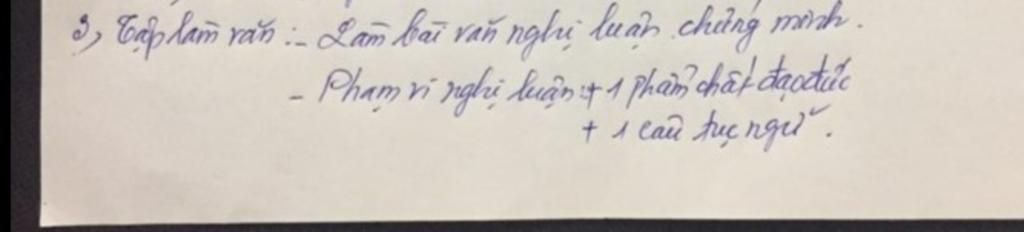 3, Tập làm văn :- Làm bài văn nghị luận chứng minh.
- Phạm vi nghị luận :+ 1 phẩm chất đạo đức
+ 1 câu tục ngữ.